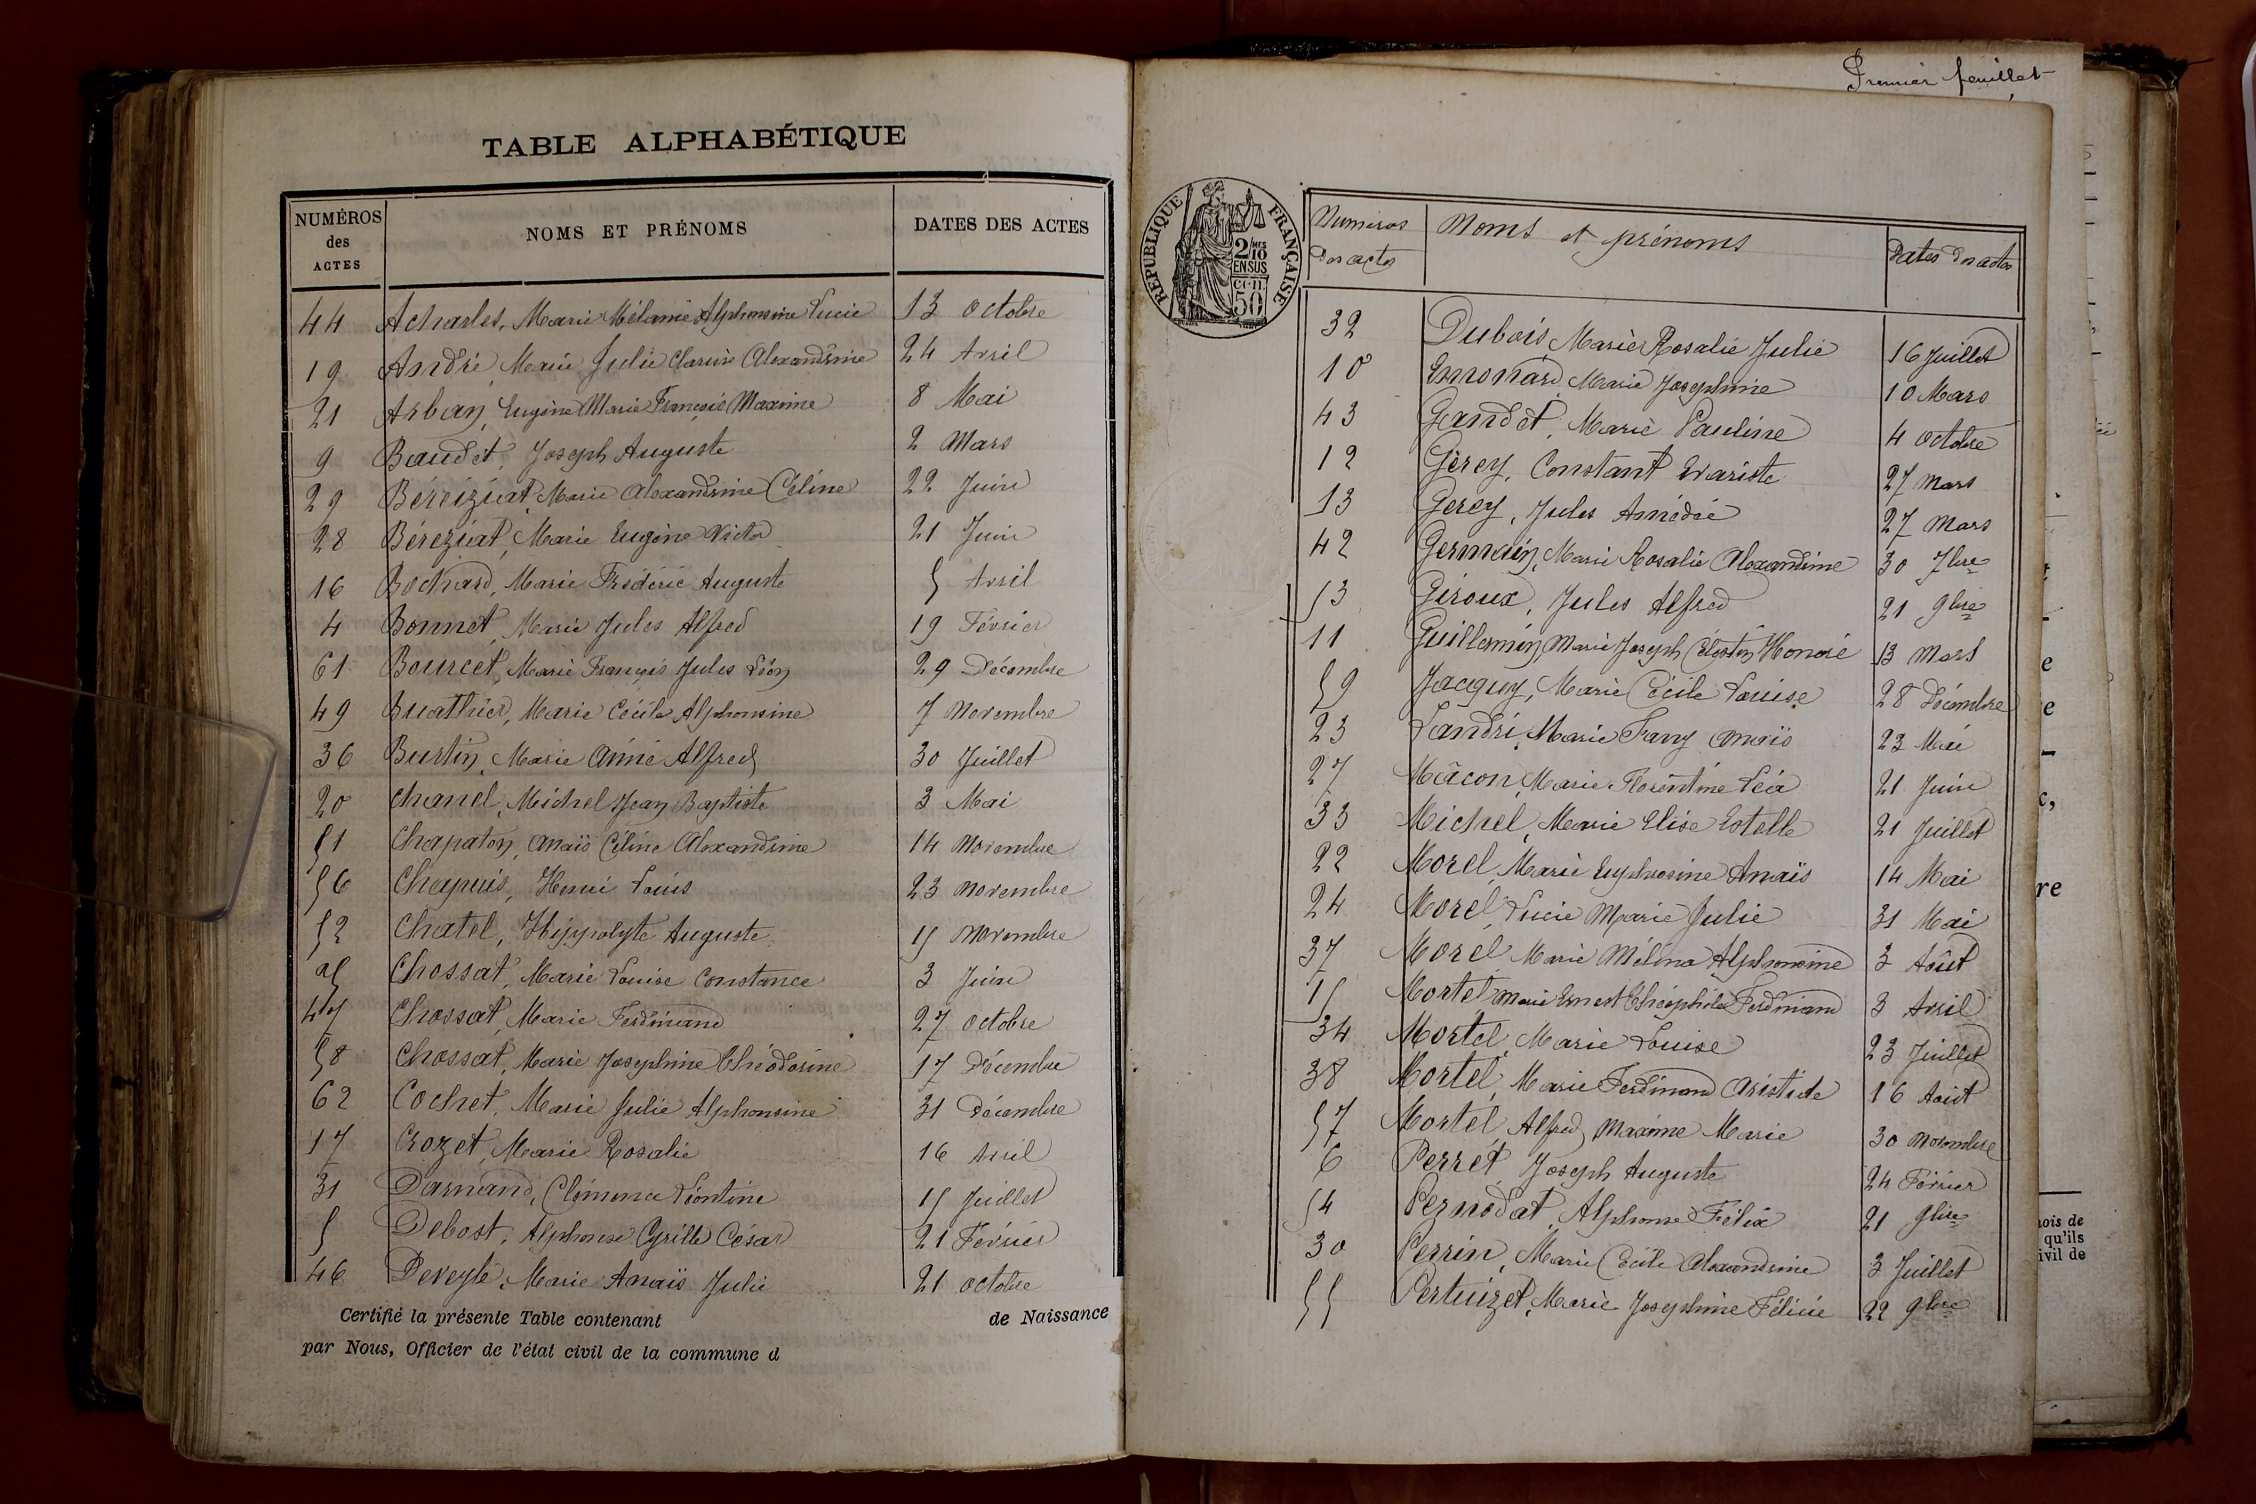 TABLE ALPHABÉTIQUE
NUMÉROS des ACTES NOMS ET PRÉNOMS DATES DES ACTES
44 Acharles, Marie Mélanie Alphonsine Lucie 13 Octobre
19 André, Marie Julie Clarisse Alexandrine 24 Avril
21 Arban, Eugène Marie François Maxime 8 Mai
9 Baudet, Joseph Auguste 2 Mars
29 Béréziat, Marie Alexandrine Céline 22 Juin
28 Béréziat, Marie Eugène Victor 21 Juin
16 Bochard, Marie Frédéric Auguste 5 Avril
4 Bonnet, Marie Jules Alfred 19 Février
61 Bourcet, Marie François Jules Léon 29 Décembre
49 Buathier, Marie Cécile Alphonsine 7 Novembre
36 Burtin, Marie Aimé Alfred 30 Juillet
20 Chanel, Michel Jean Baptiste 3 Mai
51 Chapaton, Anaïs Céline Alexandrine 14 Novembre
56 Chapuis, Henri Louis 23 Novembre
52 Chatel, Hippolyte Auguste 15 Novembre
25 Chossat, Marie Louise Constance 3 Juin
47 Chossat, Marie Ferdinand 27 Octobre
58 Chossat, Marie Joséphine Théodorine 17 Décembre
62 Cochet, Marie Julie Alphonsine 31 Décembre
17 Crozet, Marie Rosalie 16 Avril
31 Darnand, Clémence Léontine 15 Juillet
5 Debost, Alphonse Cyrille César 21 Février
46 Deveyle, Marie Anaïs Julie 21 Octobre
Certifié la présente Table contenant de Naissance
par Nous, Officier de l'état civil de la commune d
Premier feuillet
RÉPUBLIQUE FRANÇAISE
2/10 EN SUS
50
Numéros des actes Noms et prénoms Dates des actes
32 Dubois, Marie Rosalie Julie 16 Juillet
10 Emonard, Marie Joséphine 10 Mars
43 Gandet, Marie Pauline 4 Octobre
12 Gérey, Constant Evariste 27 Mars
13 Gerey, Jules Amédée 27 Mars
42 Germain, Marie Rosalie Alexandrine 30 7bre
53 Giroux, Jules Alfred 21 9bre
11 Guillermin, Marie Joseph Célestin Honoré 13 Mars
59 Jacquy, Marie Cécile Louise 28 Décembre
23 Landré, Marie Fany Anaïs 23 Mai
27 Mâcon, Marie Florentine Léa 21 Juin
33 Michel, Marie Elise Estelle 21 Juillet
22 Morel, Marie Euphrosine Anaïs 14 Mai
24 Morel, Lucie Marie Julie 31 Mai
37 Morel Marie Mélina Alphonsine 3 Août
15 Mortel, Marie Ernest Théophile Ferdinand 3 Avril
34 Mortel, Marie Louise 23 Juillet
38 Mortel, Marie Ferdinand Aristide 16 Août
57 Mortel, Alfred Maxime Marie 30 Novembre
6 Perret, Joseph Auguste 24 Février
54 Pernodat, Alphonse Félix 21 9bre
30 Perrin, Marie Cécile Alexandrine 3 Juillet
55 Pertuizet, Marie Joséphine Félicie 22 9bre